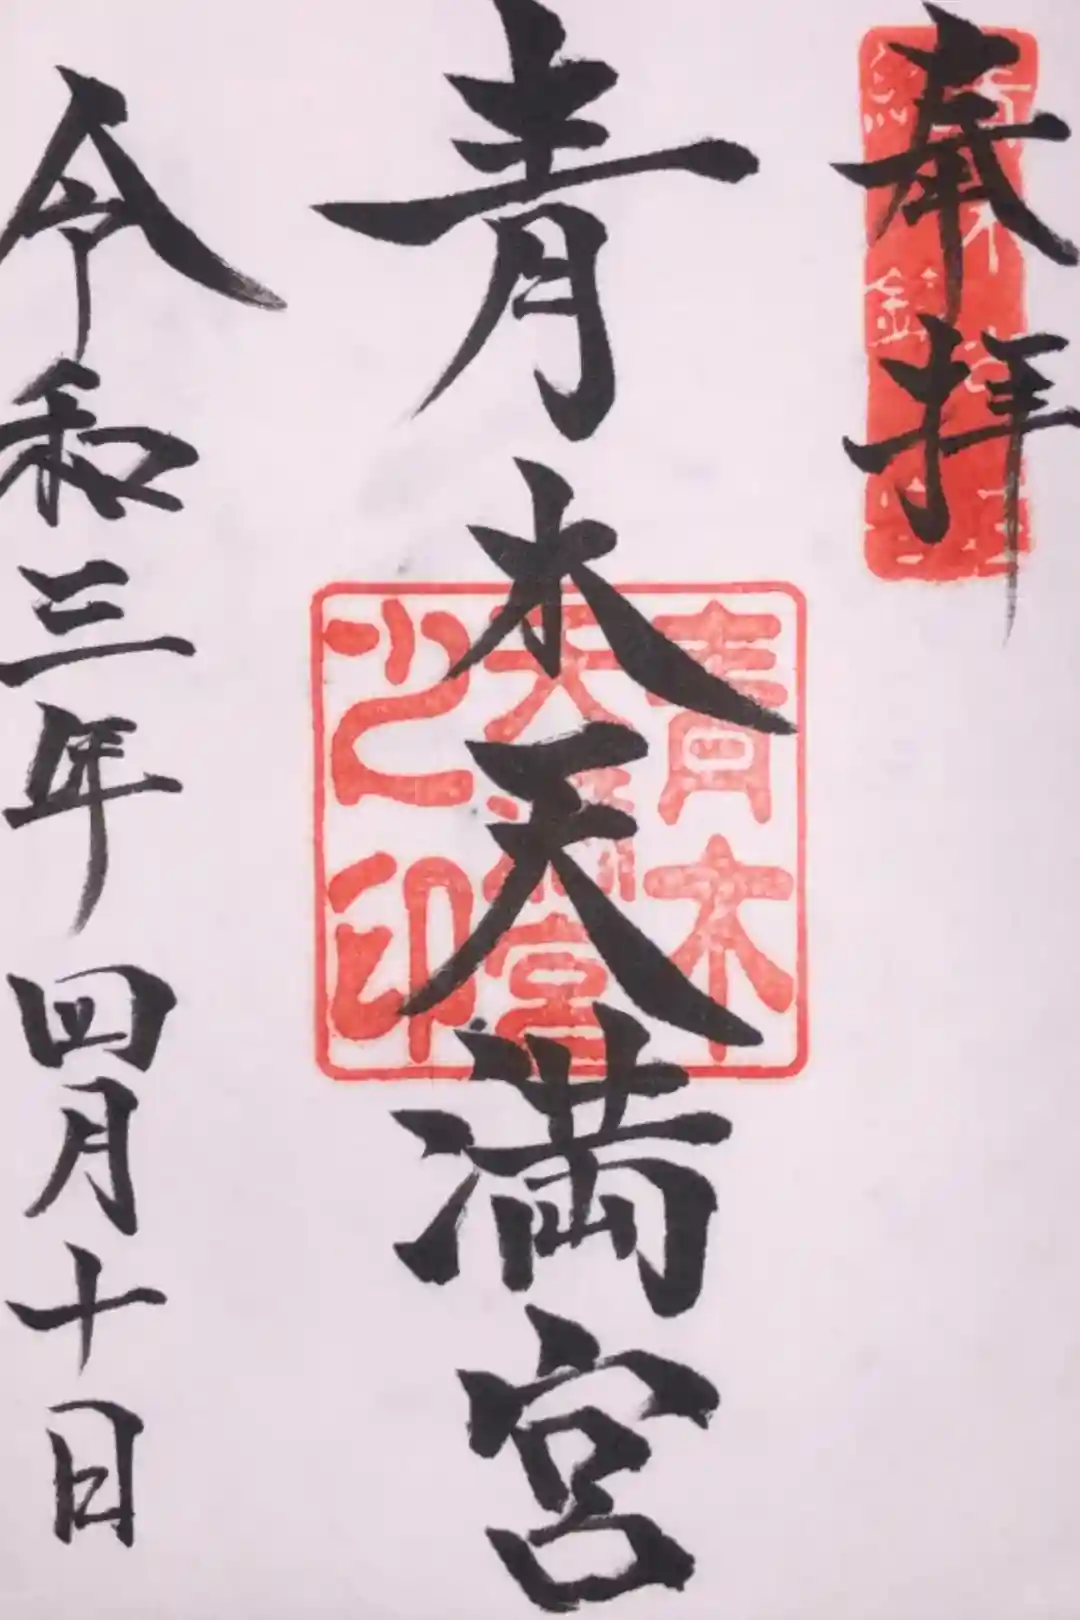 奉拝
青木天満宮
青木
天満宮
之印
令和三年四月十日